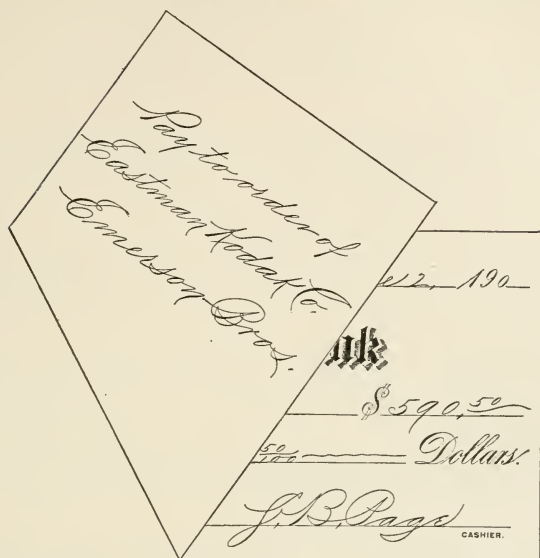 Pay to order of
Eastman Kodak Co.
Emerson Bros.
2, 190
nk
$590.50
50/100 Dollars.
J. B. Page
CASHIER.